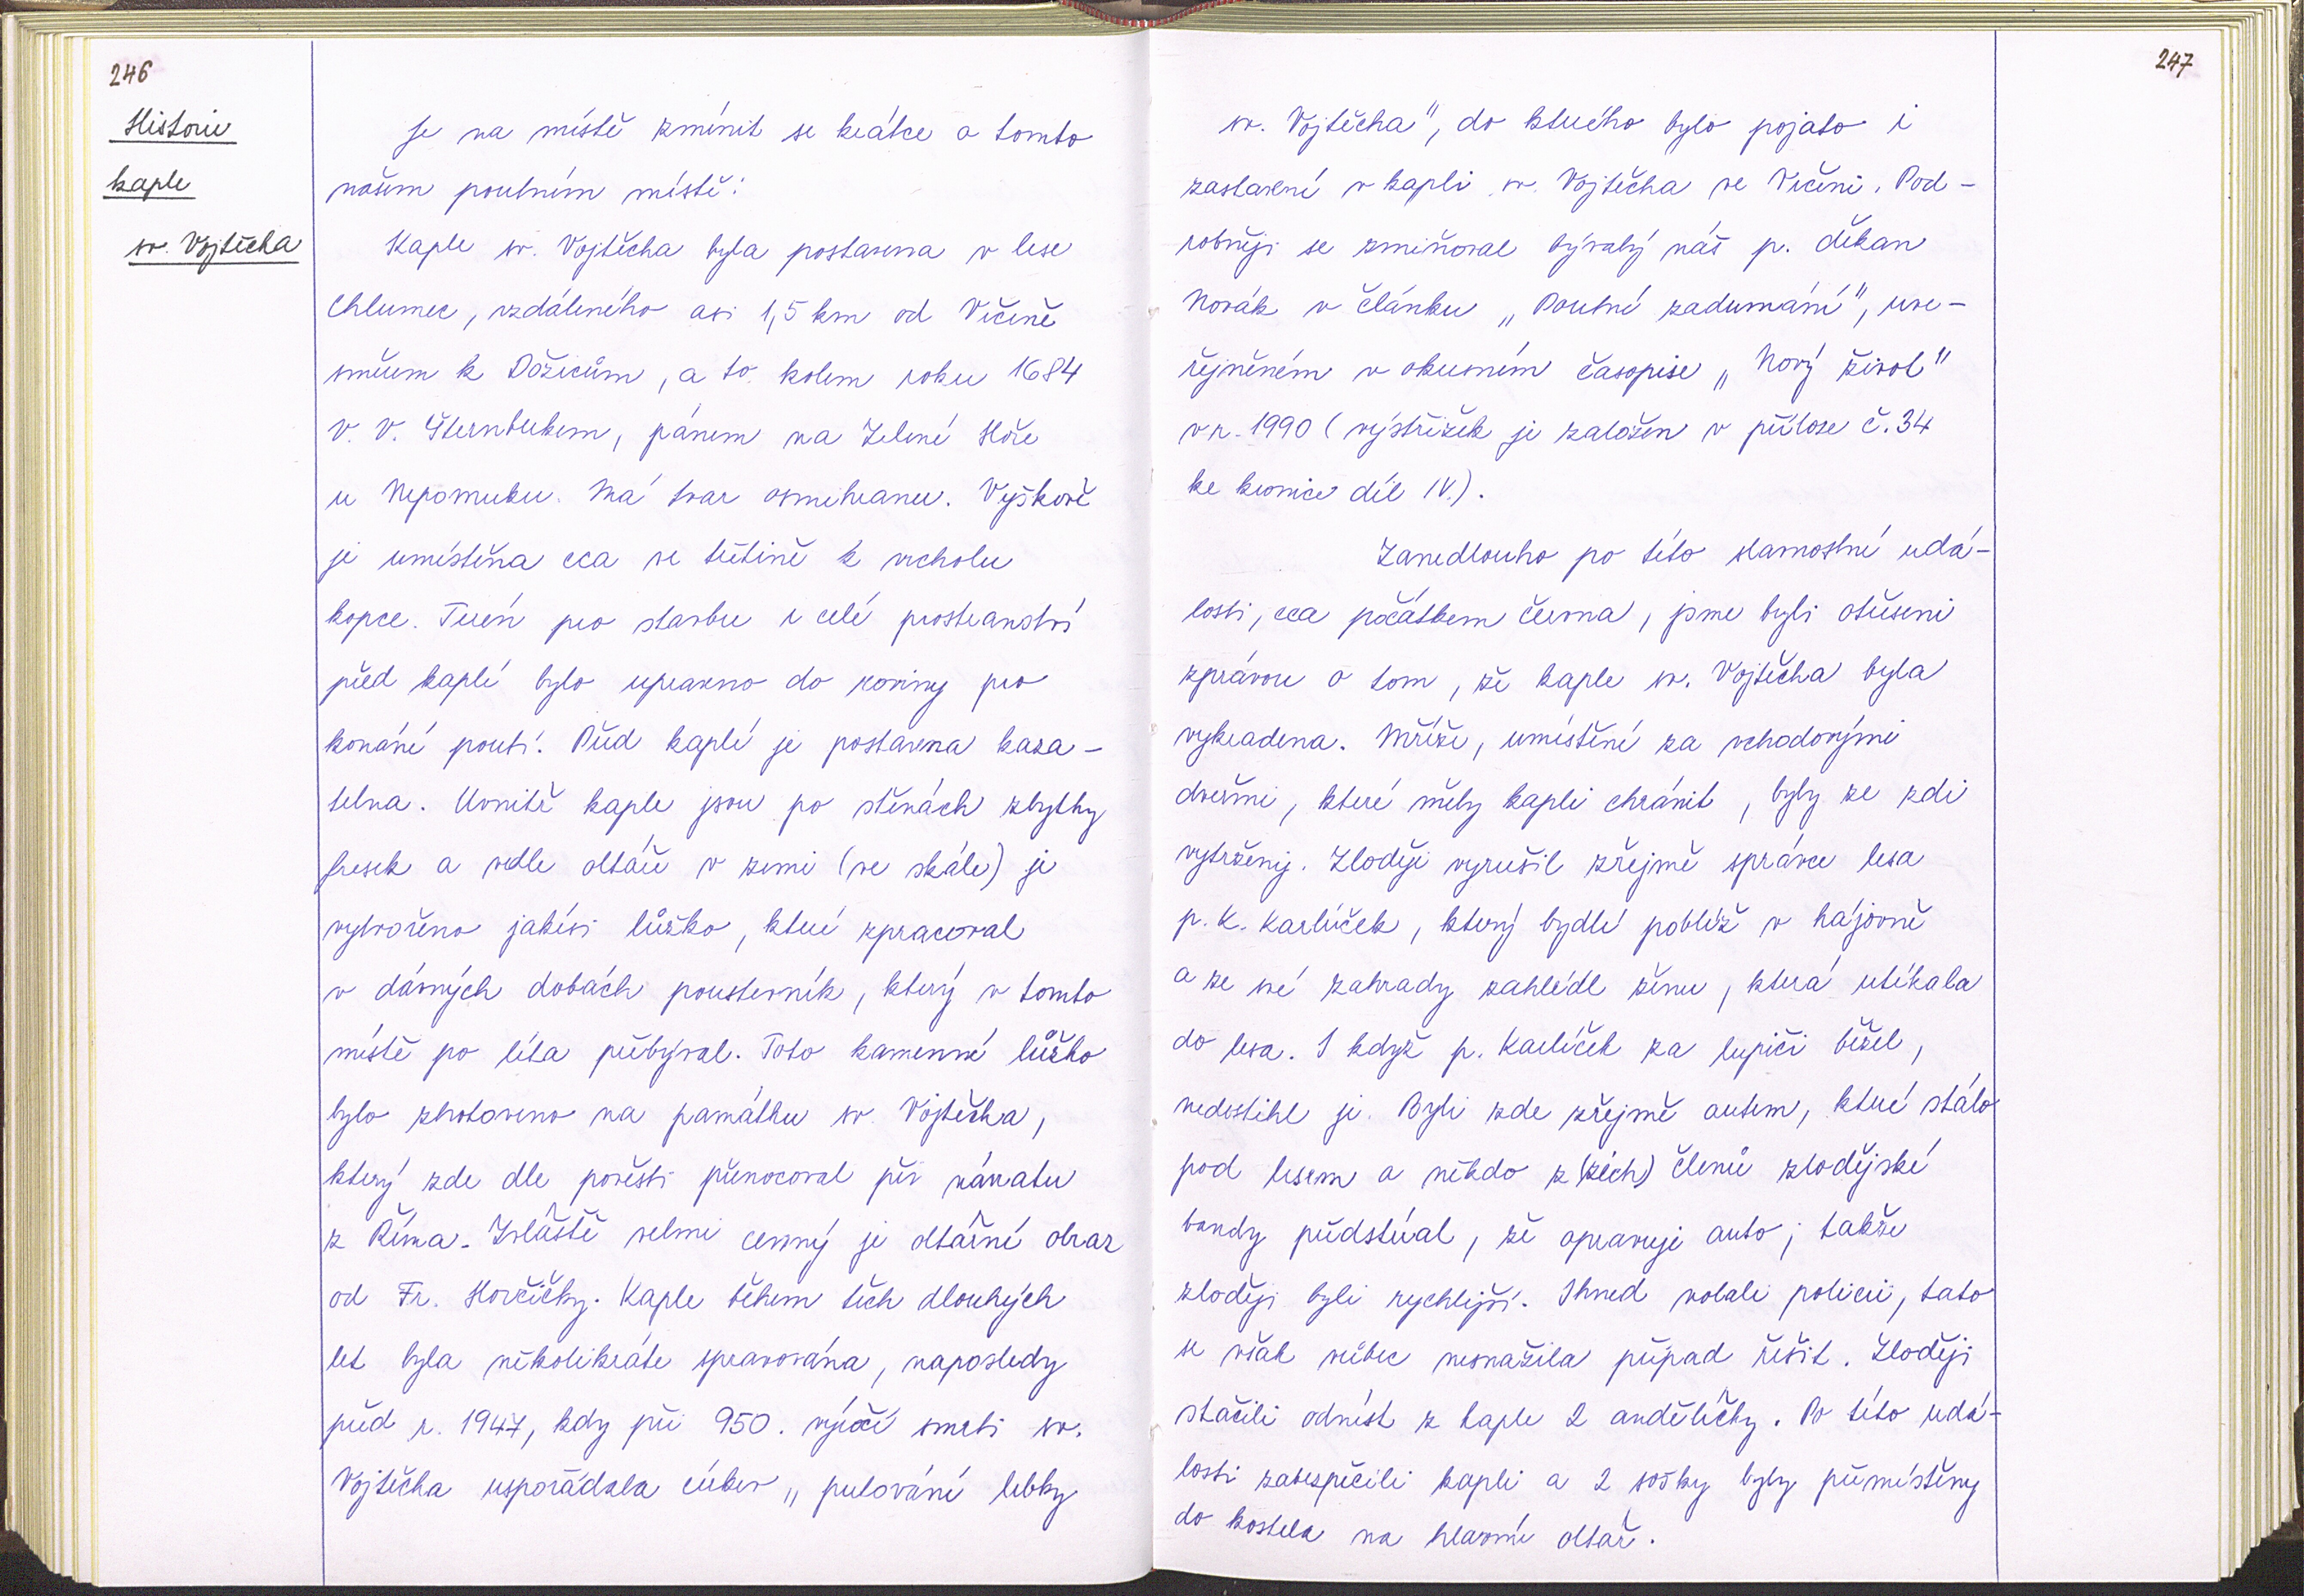 246
Historie
kaple
sv. Vojtěcha
Je na místě zmínit se krátce o tomto
našem poutním místě:
Kaple sv. Vojtěcha byla postavena v lese
Chlumec, vzdáleného asi 1,5 km od Vrčeně
směrem k Dožicům, a to kolem roku 1684
V. V. Šternberkem, pánem na Zelené Hoře
u Nepomuku. Má tvar osmihranu. Výškově
je umístěna cca ve třetině k vrcholu
kopce. Terén pro stavbu i celé prostranství
před kaplí bylo upraveno do roviny pro
konání poutí. Před kaplí je postavena kaza-
telna. Uvnitř kaple jsou po stěnách zbytky
fresek a vedle oltáře v zemi (ve skále) je
vytvořeno jakési lůžko, které zpracoval
v dávných dobách poustevník, který v tomto
místě po léta přebýval. Toto kamenné lůžko
bylo zhotoveno na památku sv. Vojtěcha,
který zde dle pověsti přenocoval při návratu
z Říma. Zvláště velmi cenný je oltářní obraz
od Fr. Horčičky. Kaple během těch dlouhých
let byla několikráte spravována, naposledy
před r. 1947, kdy při 950. výročí smrti sv.
Vojtěcha uspořádala církev „putování lebky
247
sv. Vojtěcha", do kterého bylo pojato i
zastavení v kapli sv. Vojtěcha ve Vrčeni. Pod-
robněji se zmiňoval bývalý náš p. děkan
Novák v článku „Poutní zadumání", uve-
řejněném v okresním časopise „Nový život"
v r. 1990 (výstřižek je založen v příloze č. 34
ke kronice díl IV.).
Zanedlouho po této slavnostní udá-
losti, cca počátkem června, jsme byli otřeseni
zprávou o tom, že kaple sv. Vojtěcha byla
vykradena. Mříže, umístěné za vchodovými
dveřmi, které měly kapli chránit, byly ze zdi
vytrženy. Zloděje vyrušil zřejmě správce lesa
p. K. Karlíček, který bydlí poblíž v hájovně
a ze své zahrady zahlédl ženu, která utíkala
do lesa. I když p. Karlíček za lupiči běžel,
nedostihl je. Byli zde zřejmě autem, které stálo
pod lesem a někdo z (zích) členů zlodějské
bandy předstíral, že opravuje auto; takže
zloději byli rychlejší. Ihned volali policii, tato
se však vůbec nesnažila případ řešit. Zloději
stačili odnést z kaple 2 andělíčky. Po této udá-
losti zabezpečili kapli a 2 sošky byly přemístěny
do kostela na hlavní oltář.